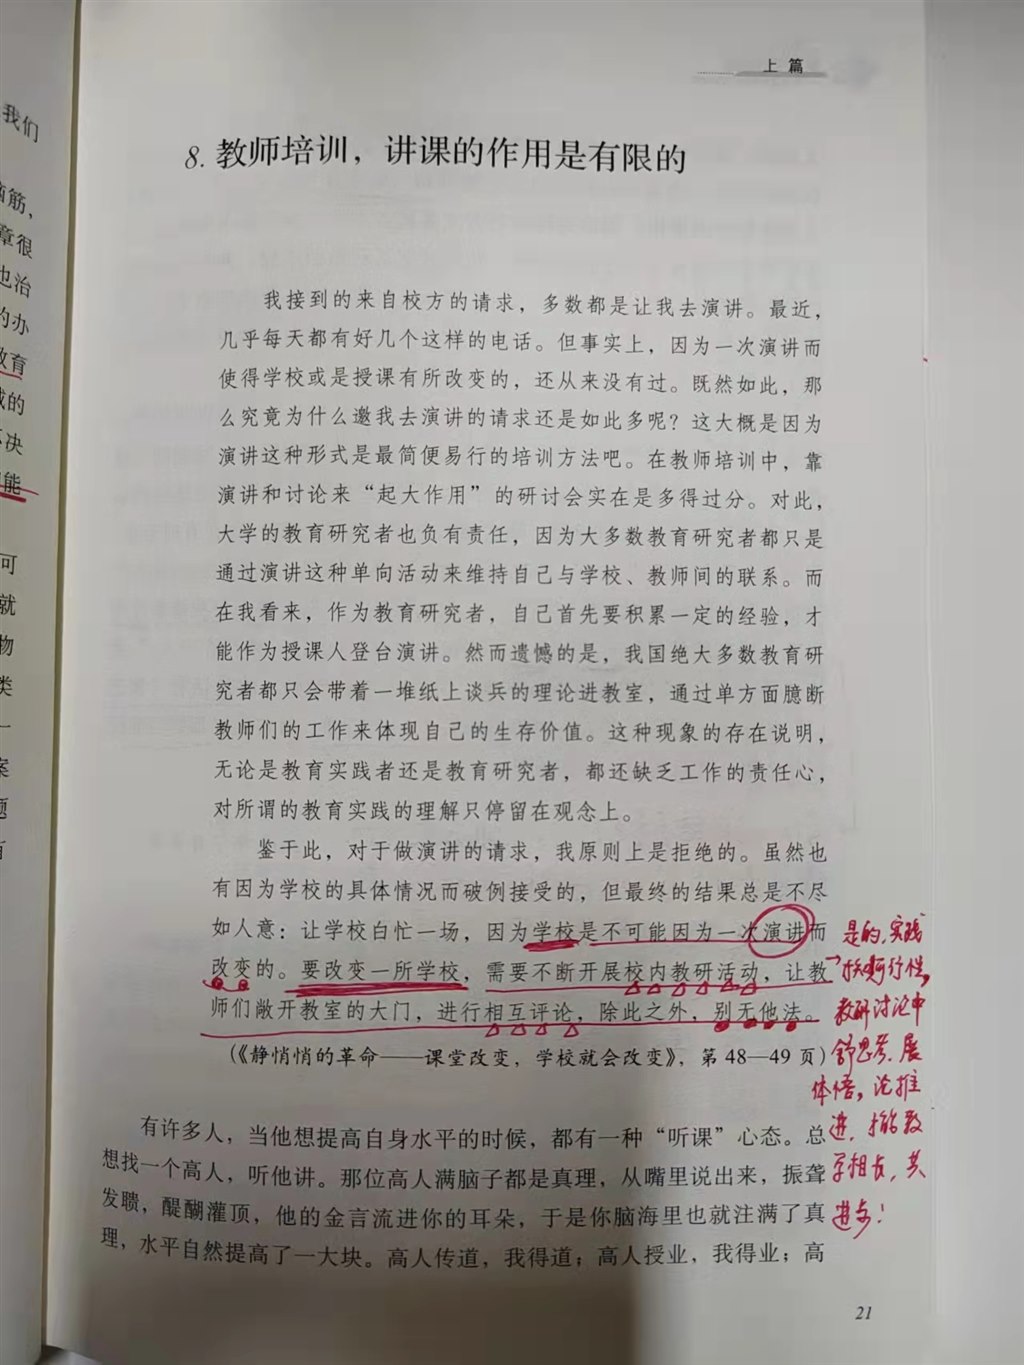 我们
脑筋，
章很
也治
的办
教育
域的
不决
能
可
就
物
类
一
案
题
上篇
8. 教师培训，讲课的作用是有限的
我接到的来自校方的请求，多数都是让我去演讲。最近，
几乎每天都有好几个这样的电话。但事实上，因为一次演讲而
使得学校或是授课有所改变的，还从来没有过。既然如此，那
么究竟为什么邀我去演讲的请求还是如此多呢？这大概是因为
演讲这种形式是最简便易行的培训方法吧。在教师培训中，靠
演讲和讨论来“起大作用”的研讨会实在是多得过分。对此，
大学的教育研究者也负有责任，因为大多数教育研究者都只是
通过演讲这种单向活动来维持自己与学校、教师间的联系。而
在我看来，作为教育研究者，自己首先要积累一定的经验，才
能作为授课人登台演讲。然而遗憾的是，我国绝大多数教育研
究者都只会带着一堆纸上谈兵的理论进教室，通过单方面臆断
教师们的工作来体现自己的生存价值。这种现象的存在说明，
无论是教育实践者还是教育研究者，都还缺乏工作的责任心，
对所谓的教育实践的理解只停留在观念上。
鉴于此，对于做演讲的请求，我原则上是拒绝的。虽然也
有因为学校的具体情况而破例接受的，但最终的结果总是不尽
如人意：让学校白忙一场，因为学校是不可能因为一次演讲而
改变的。要改变一所学校，需要不断开展校内教研活动，让教
师们敞开教室的大门，进行相互评论，除此之外，别无他法。
（《静悄悄的革命——课堂改变，学校就会改变》，第 48—49 页）
是的，实践
行性，
教研讨论中
思考、展
体悟，论推
进，教
学相长，共
进步！
有许多人，当他想提高自身水平的时候，都有一种“听课”心态。总
想找一个高人，听他讲。那位高人满脑子都是真理，从嘴里说出来，振聋
发聩，醍醐灌顶，他的金言流进你的耳朵，于是你脑海里也就注满了真
理，水平自然提高了一大块。高人传道，我得道；高人授业，我得业；高
21